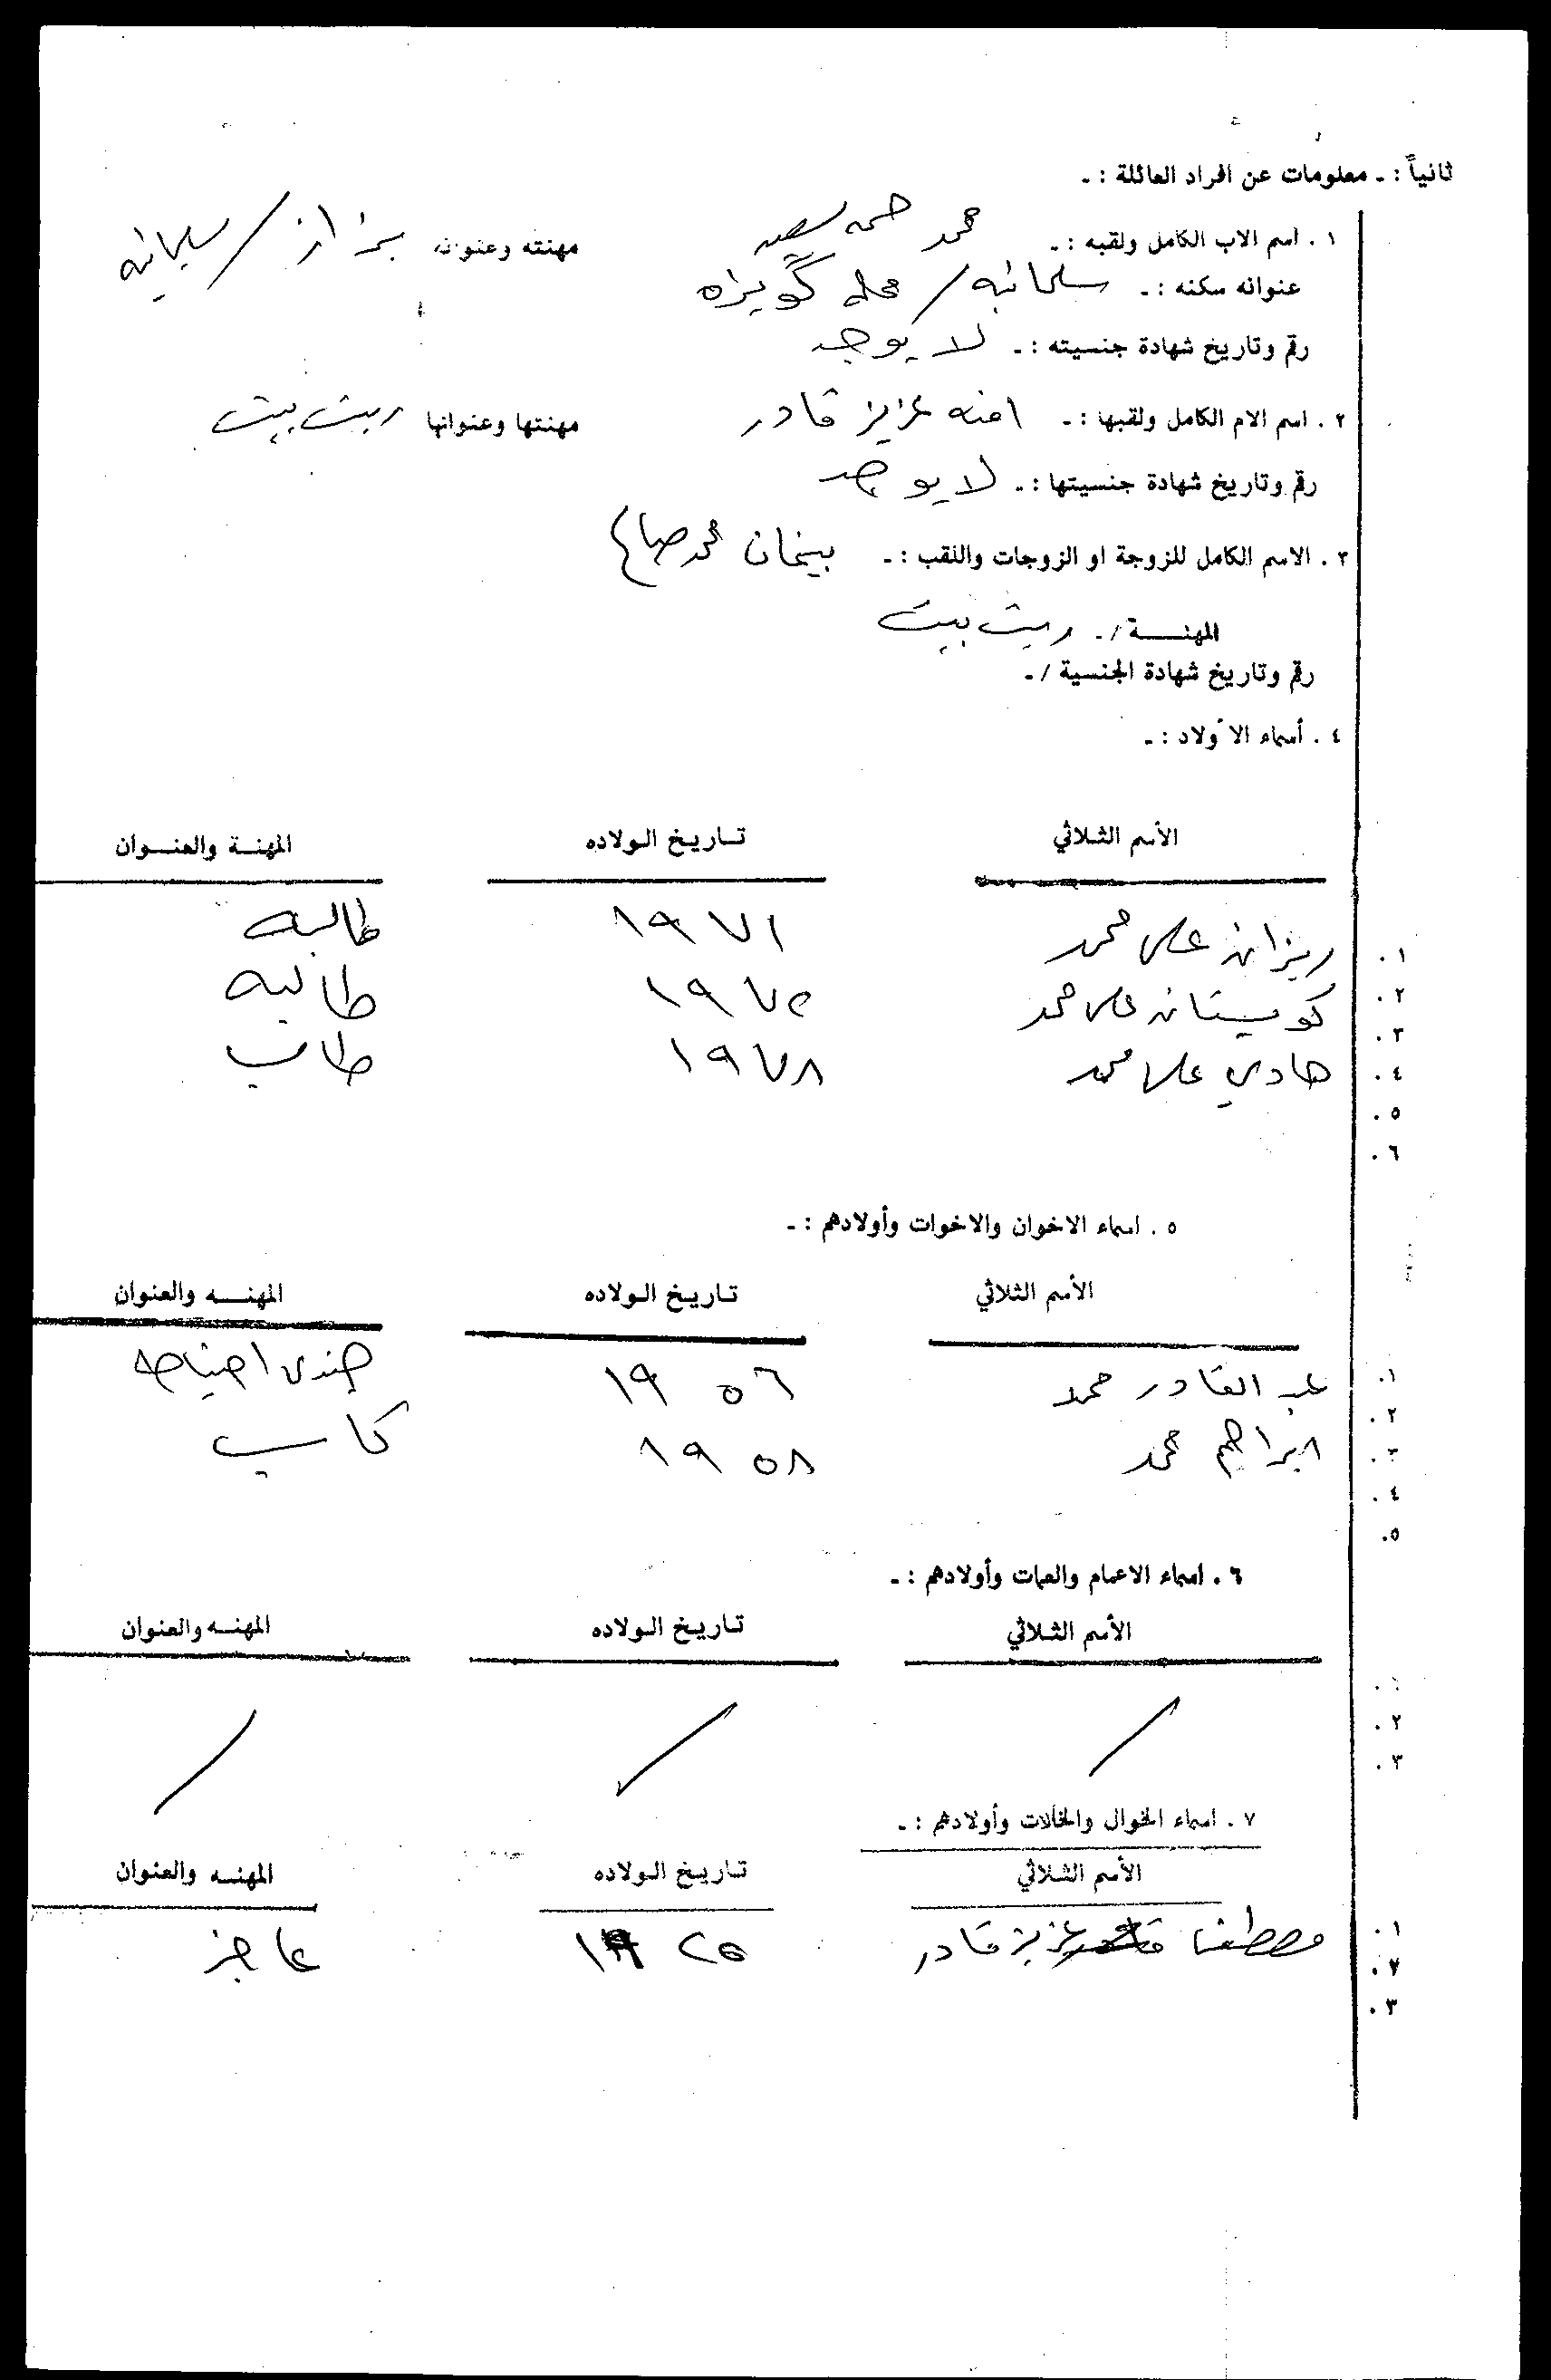 ثانياً : ـ معلومات عن افراد العائلة : ـ
١ . اسم الاب الكامل ولقبه : ـ محمد حمه سعيد مهنته وعنوانه بزاز / سليمانيه
عنوانه سكنه : ـ سليمانيه / محلة گويزه
رقم وتاريخ شهادة جنسيته : ـ لا يوجد
٢ . اسم الام الكامل ولقبها : ـ امنه عزيز قادر مهنتها وعنوانها ربت بيت
رقم وتاريخ شهادة جنسيتها : ـ لا يوجد
٣ . الاسم الكامل للزوجة او الزوجات واللقب : ـ محمد صالح
المهنـــــة / ـ ربت بيت
رقم وتاريخ شهادة الجنسية / ـ
٤ . أسماء الأولاد : ـ
الأسم الثـلاثي تـاريـخ الـولاده المهنـــة والعنـــوان
١ . ريزان علي محمد ١٩٧١ طالبه
٢ . كويستان علي محمد ١٩٧٥ طالبه
٣ . هادي علي محمد ١٩٧٨ طالب
٤ .
٥ .
٦ .
٥ . اسماء الاخوان والاخوات وأولادهم : ـ
الأسم الثلاثي تـاريـخ الـولاده المهنــــه والعنوان
١ . عبد القادر محمد ١٩٥٦ جندي احتياط
٢ . ابراهيم محمد ١٩٥٨ كاسب
٣ .
٤ .
٥ .
٦ . اسماء الاعمام والعمات وأولادهم : ـ
الأسم الثـلاثي تـاريـخ الـولاده المهنــه والعنوان
١ . / / /
٢ .
٣ .
٧ . اسماء الخوال والخالات وأولادهم : ـ
الأسم الثـلاثي تـاريـخ الـولاده المهنــه والعنوان
١ . مصطفى عزيز قادر ١٩٢٥ عاجز
٧ .
٣ .